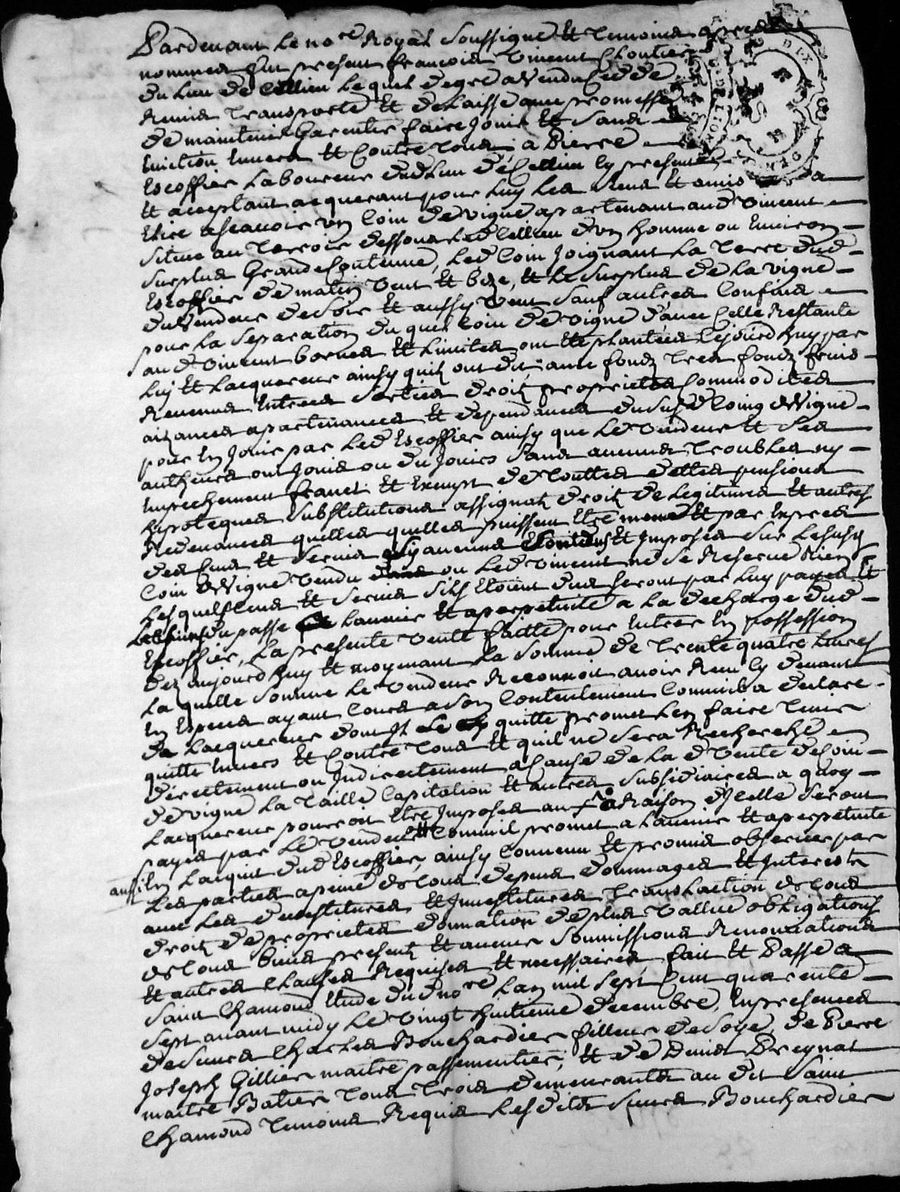 Pardevant le no.re Royal soussigné et temoins apres
nommés fut present françois Vincent Cloutier
du lieu de Cellieu lequel de gré a Vendu Ceddé
Remis transporté et delaissé avec promesse
de maintenir Garentir faire Jouir et sans
Eviction Envers et Contre tous, a Pierre
Escoffier Laboureur dud. lieu de Cellieu Cy present
et acceptant acquerant pour luy les siens et amis
Elire ascavoir un Coin de vigne apartenant aud. Vincent
situé au terroir dessous led. Cellieu d'un homme ou Environ
surplus Grande Contenue, led. Coin Joignant la terre dud.
Escoffier de matin Vent et bize, et le surplus de la vigne
du Vendeur de soir et aussy Vent sauf autres Confins
pour la separation duquel Coin de vigne d'avec Celle Restante
aud. Vincent bornes et limites ont été plantées Cejourd'huy par
luy et l'acquereur ainsy qu'ils ont dit; avec fondz tres fondz fruits
Revenus Entrées sorties droit proprietés Commodités
aizances apartenances et dependances du susd. Coing de Vigne
pour En Jouir par led. Escoffier ainsy que le Vendeur et ses
autheurs ont Jouis ou du Jouirs sans aucuns troubles ny
Empechement franc et Exempt de touttes dettes pensions
hypoteques substitutions assignat droit de legitimes et autres
Redevances quelles quelles puissent etre meme et par Exprés
des Cens et servis sy aucuns sont dus et Imposés sur le susd.
Coin de Vigne Vendu ou led. Vincent ne se Reserve Rien
lesquels Cens et servis s'ils etoient dus seront par luy payés et
du passé l'avenir et a perpetuité a la decharge dud.
Escoffier, la presente Vente faitte pour Entrer En possession
dez aujourd'huy et moyenant la somme de trente quatre livres
la quelle somme le Vendeur Reconnoit avoir Receu Cy devant
En Especes ayant Cours a son Contentement Comme il a declaré
de l'acquereur dont le quitte promet l'en faire tenir
quitte Envers et Contre tous et qu'il ne sera Recherché
directement ou Indirectement a Cause de la d. Vente de Coin
de Vigne la taille Capitation et autres subsidiaires a quoy
l'acquereur pourroit Etre Imposés a Raison d'Icelle seront
payés par le Vendeur Comme il promet a l'avenir et a perpetuité
En l'acquit dud. Escoffier, ainsy Convenu et promis observer par
les parties a peine de tous depens dommages et Interets
avec les devestitures et Investitures translaction de tous
droit de proprietés donnation de plus Vallue obligations
de tous biens presents et avenir soumissions Renonciations
et autres Clauses Requises et necessaires fait et Passé a
Saint Chamond Etude dud. no.re l'an mil sept Cent quarente
sept avant midy le vingt huitieme decembre, En presences
de sieurs Charles Bouchardier filleur de soye, de Pierre
Joseph Gillier maitre passementier, et de Denis Preynat
maitre Batier tous trois demeurants au dit Saint
Chamond temoins Requis lesdits sieurs Bouchardier